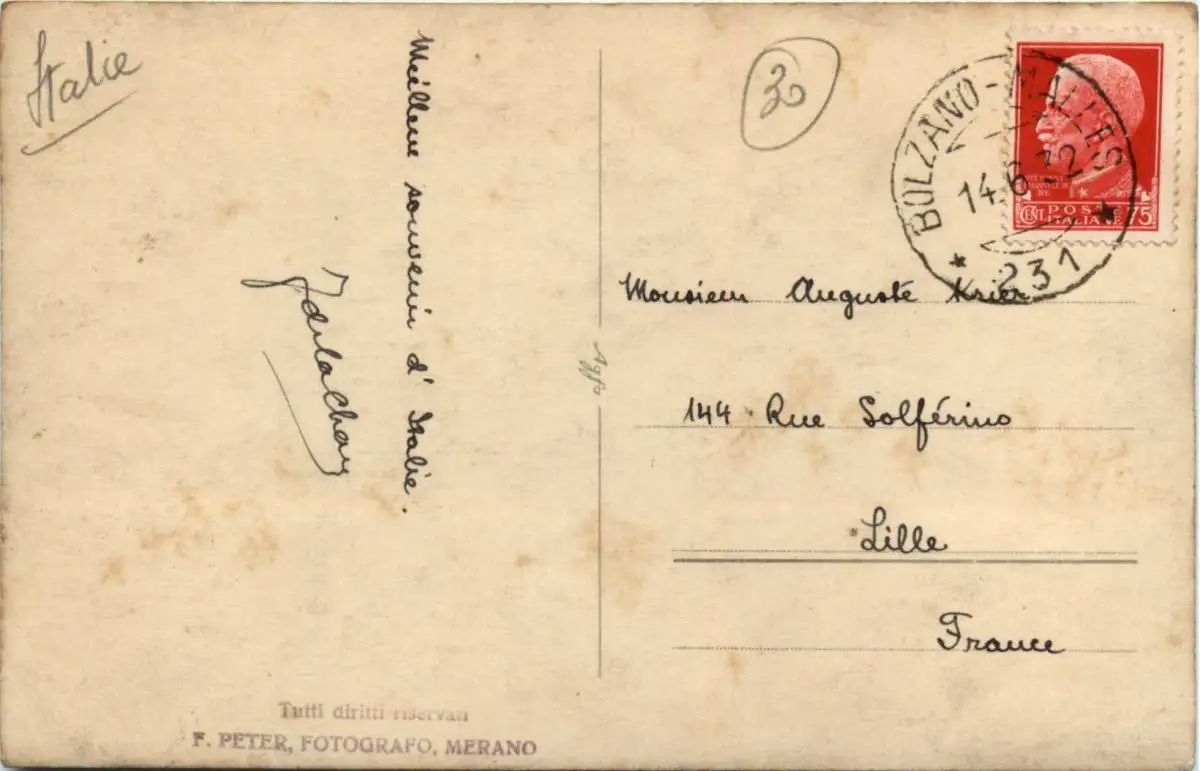 Italie
Meilleur souvenir d'Italie.
30
BOLZANO-MALLES
14.6.32
231
POSTE
ITALIANE
CENT. 75
Monsieur Auguste Krier
144 Rue Solférino
Lille
France
Agfa
Tutti diritti riservati
F. PETER, FOTOGRAFO, MERANO